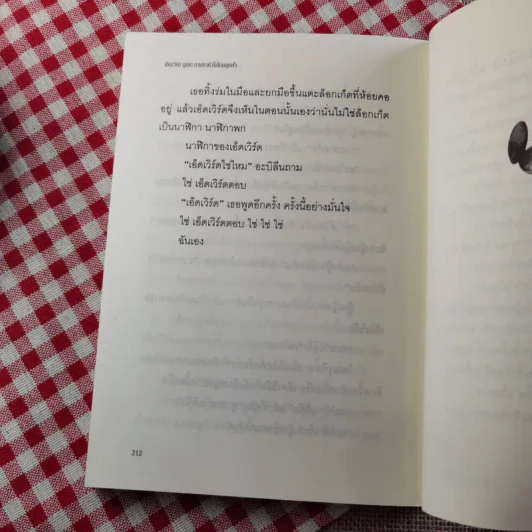 เธอทิ้งร่มในมือและยกมือขึ้นแตะล็อกเก็ตที่ห้อยคอ
อยู่ แล้วเอ็ดเวิร์ดจึงเห็นในตอนนั้นเองว่านั่นไม่ใช่ล็อกเก็ต
เป็นนาฬิกา นาฬิกาพก
นาฬิกาของเอ็ดเวิร์ด
“เอ็ดเวิร์ดใช่ไหม” อะบิลีนถาม
ใช่ เอ็ดเวิร์ดตอบ
“เอ็ดเวิร์ด” เธอพูดอีกครั้ง ครั้งนี้อย่างมั่นใจ
ใช่ เอ็ดเวิร์ดตอบ ใช่ ใช่ ใช่
ฉันเอง
212